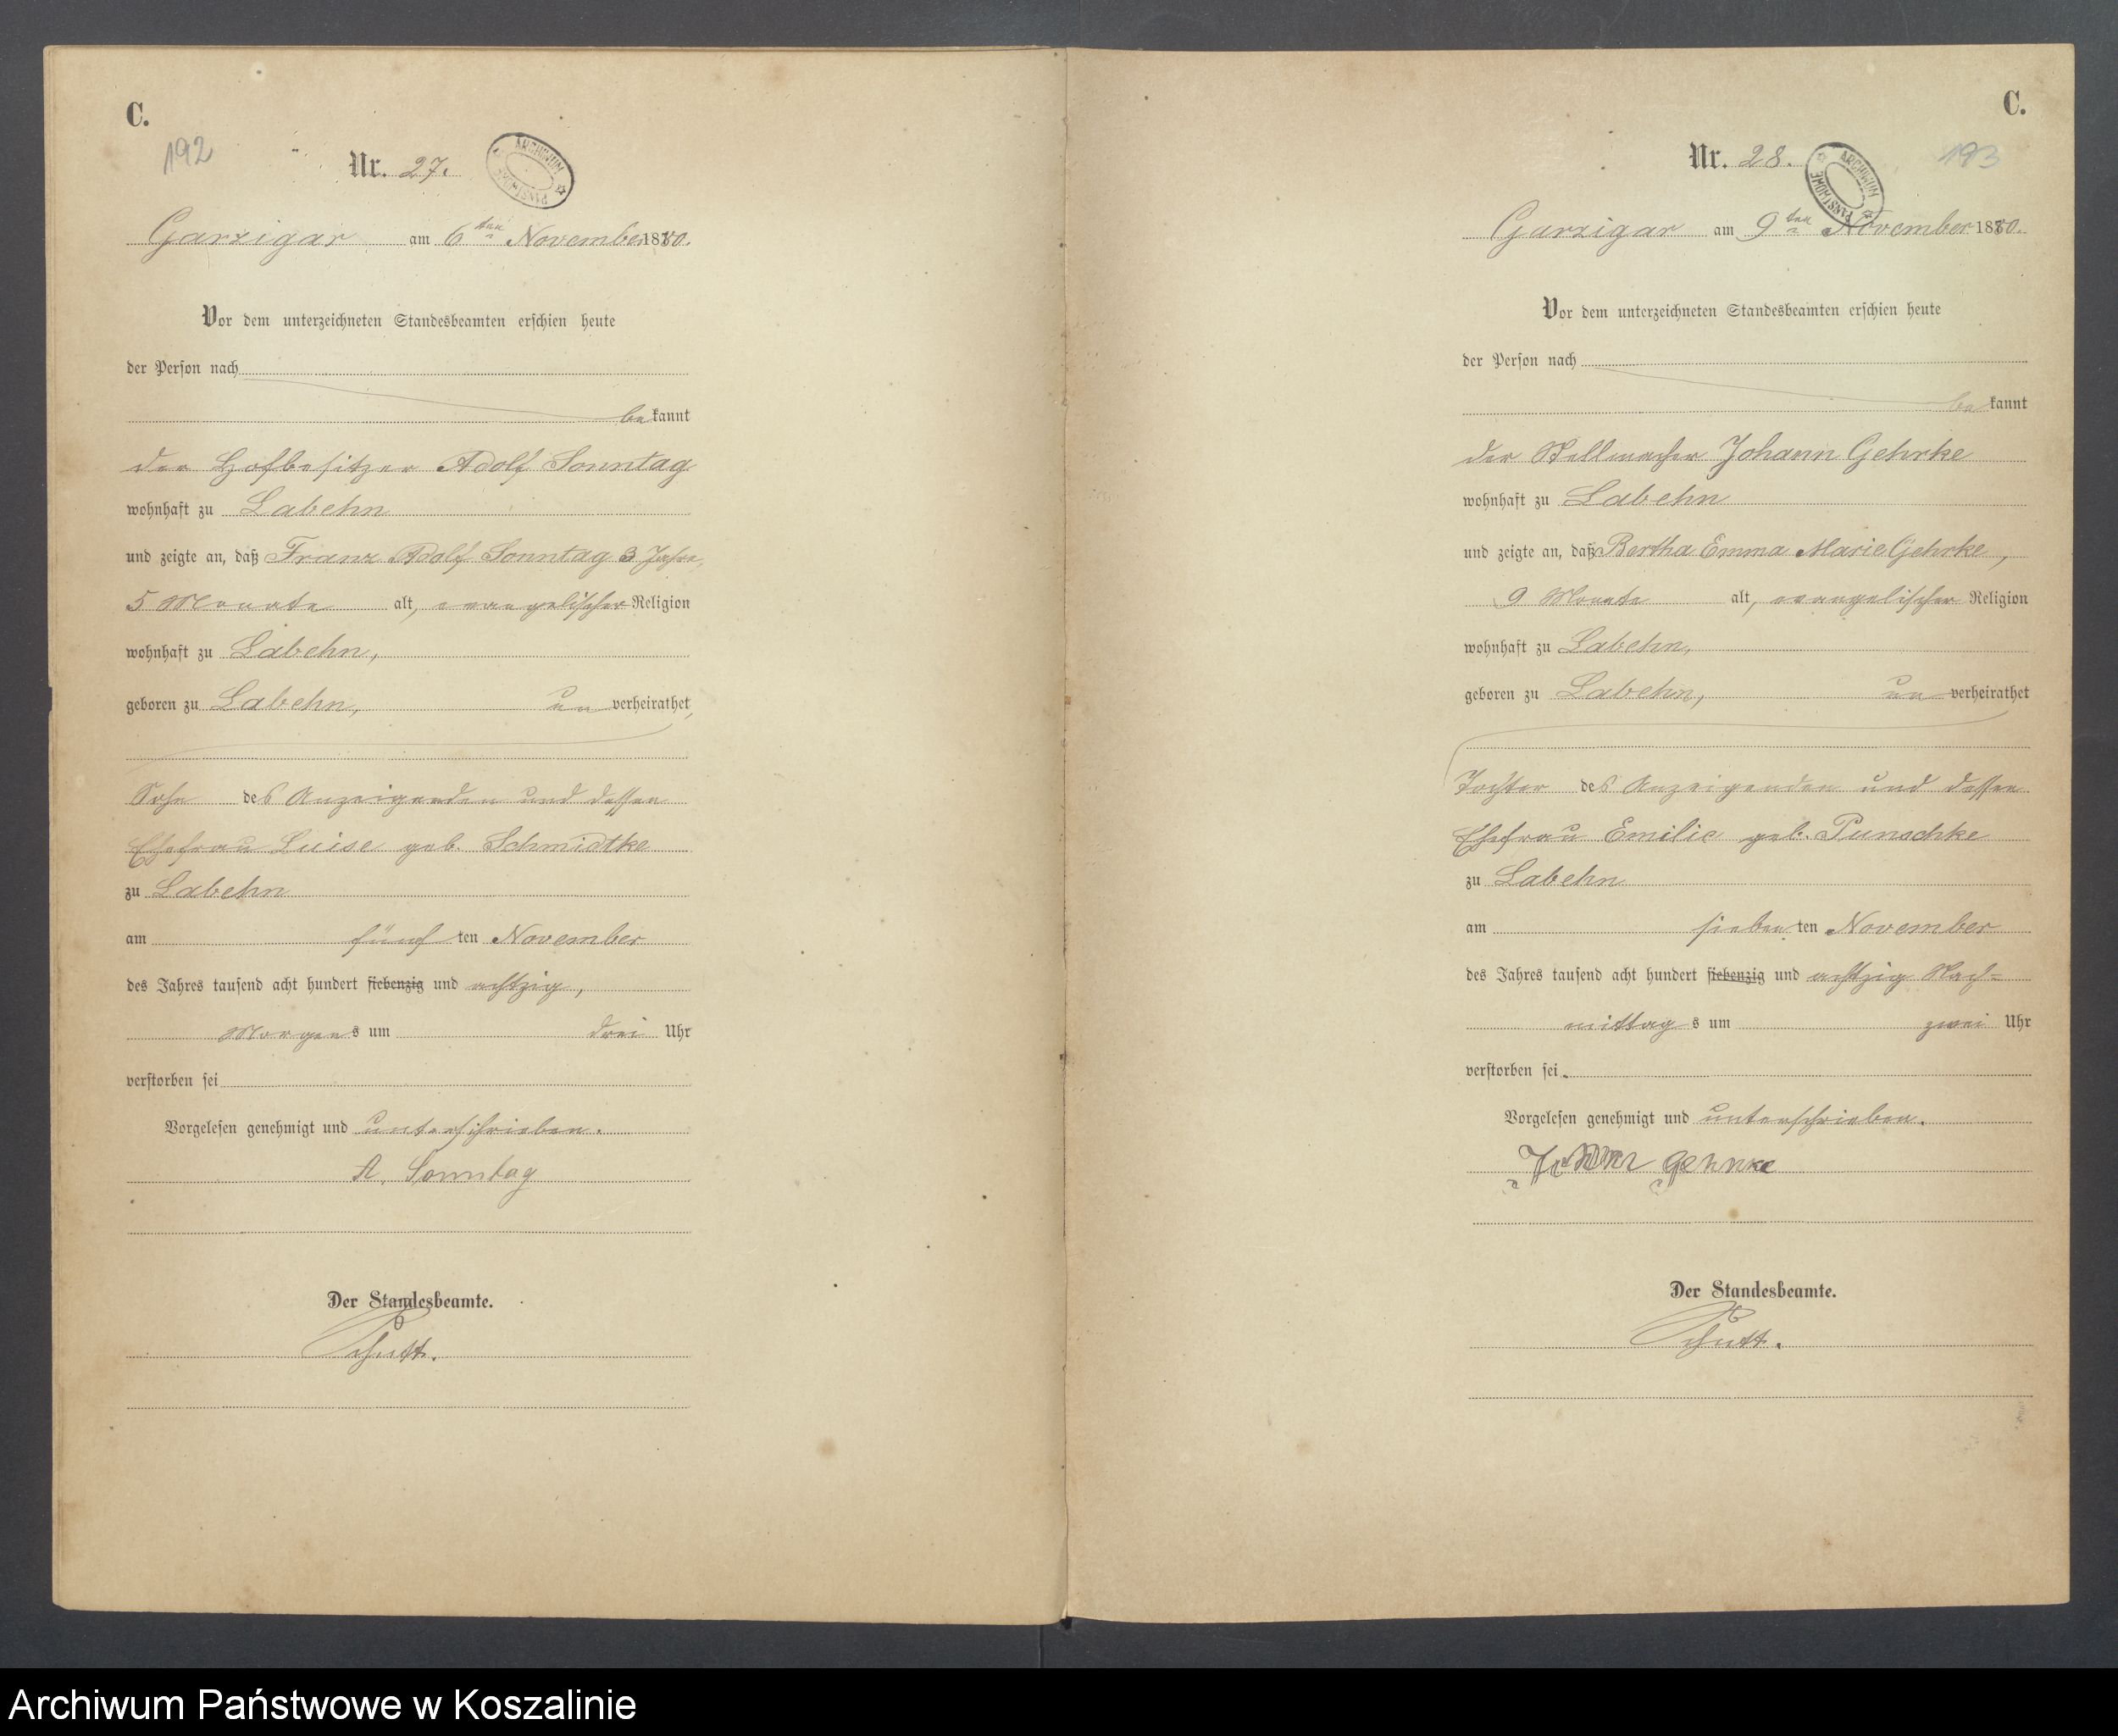 C.
192
Nr. 27.
ARCHIWUM PAŃSTWOWE
Garzigar am 6ten November 1880.
Vor dem unterzeichneten Standesbeamten erschien heute
der Person nach
bekannt
der Hofbesitzer Adolf Sonntag
wohnhaft zu Labehn
und zeigte an, daß Franz Adolf Sonntag 3 Jahre,
5 Monate alt, evangelischer Religion
wohnhaft zu Labehn,
geboren zu Labehn, unverheirathet,
Sohn des Anzeigenden und dessen
Ehefrau Luise geb. Schmidtke
zu Labehn
am fünften November
des Jahres tausend acht hundert siebenzig und achtzig,
Morgens um drei Uhr
verstorben sei
Vorgelesen genehmigt und unterschrieben.
A. Sonntag
Der Standesbeamte.
Schutt.
C.
Nr. 28.
193
ARCHIWUM PAŃSTWOWE
Garzigar am 9ten November 1880.
Vor dem unterzeichneten Standesbeamten erschien heute
der Person nach
bekannt
der Stellmacher Johann Gehrke
wohnhaft zu Labehn
und zeigte an, daß Bertha Emma Marie Gehrke,
9 Monate alt, evangelischer Religion
wohnhaft zu Labehn,
geboren zu Labehn, unverheirathet
Tochter des Anzeigenden und dessen
Ehefrau Emilie geb. Punschke
zu Labehn
am siebenten November
des Jahres tausend acht hundert siebenzig und achtzig Nach=
mittags um zwei Uhr
verstorben sei.
Vorgelesen genehmigt und unterschrieben.
Johann Gehrke
Der Standesbeamte.
Schutt.
Archiwum Państwowe w Koszalinie